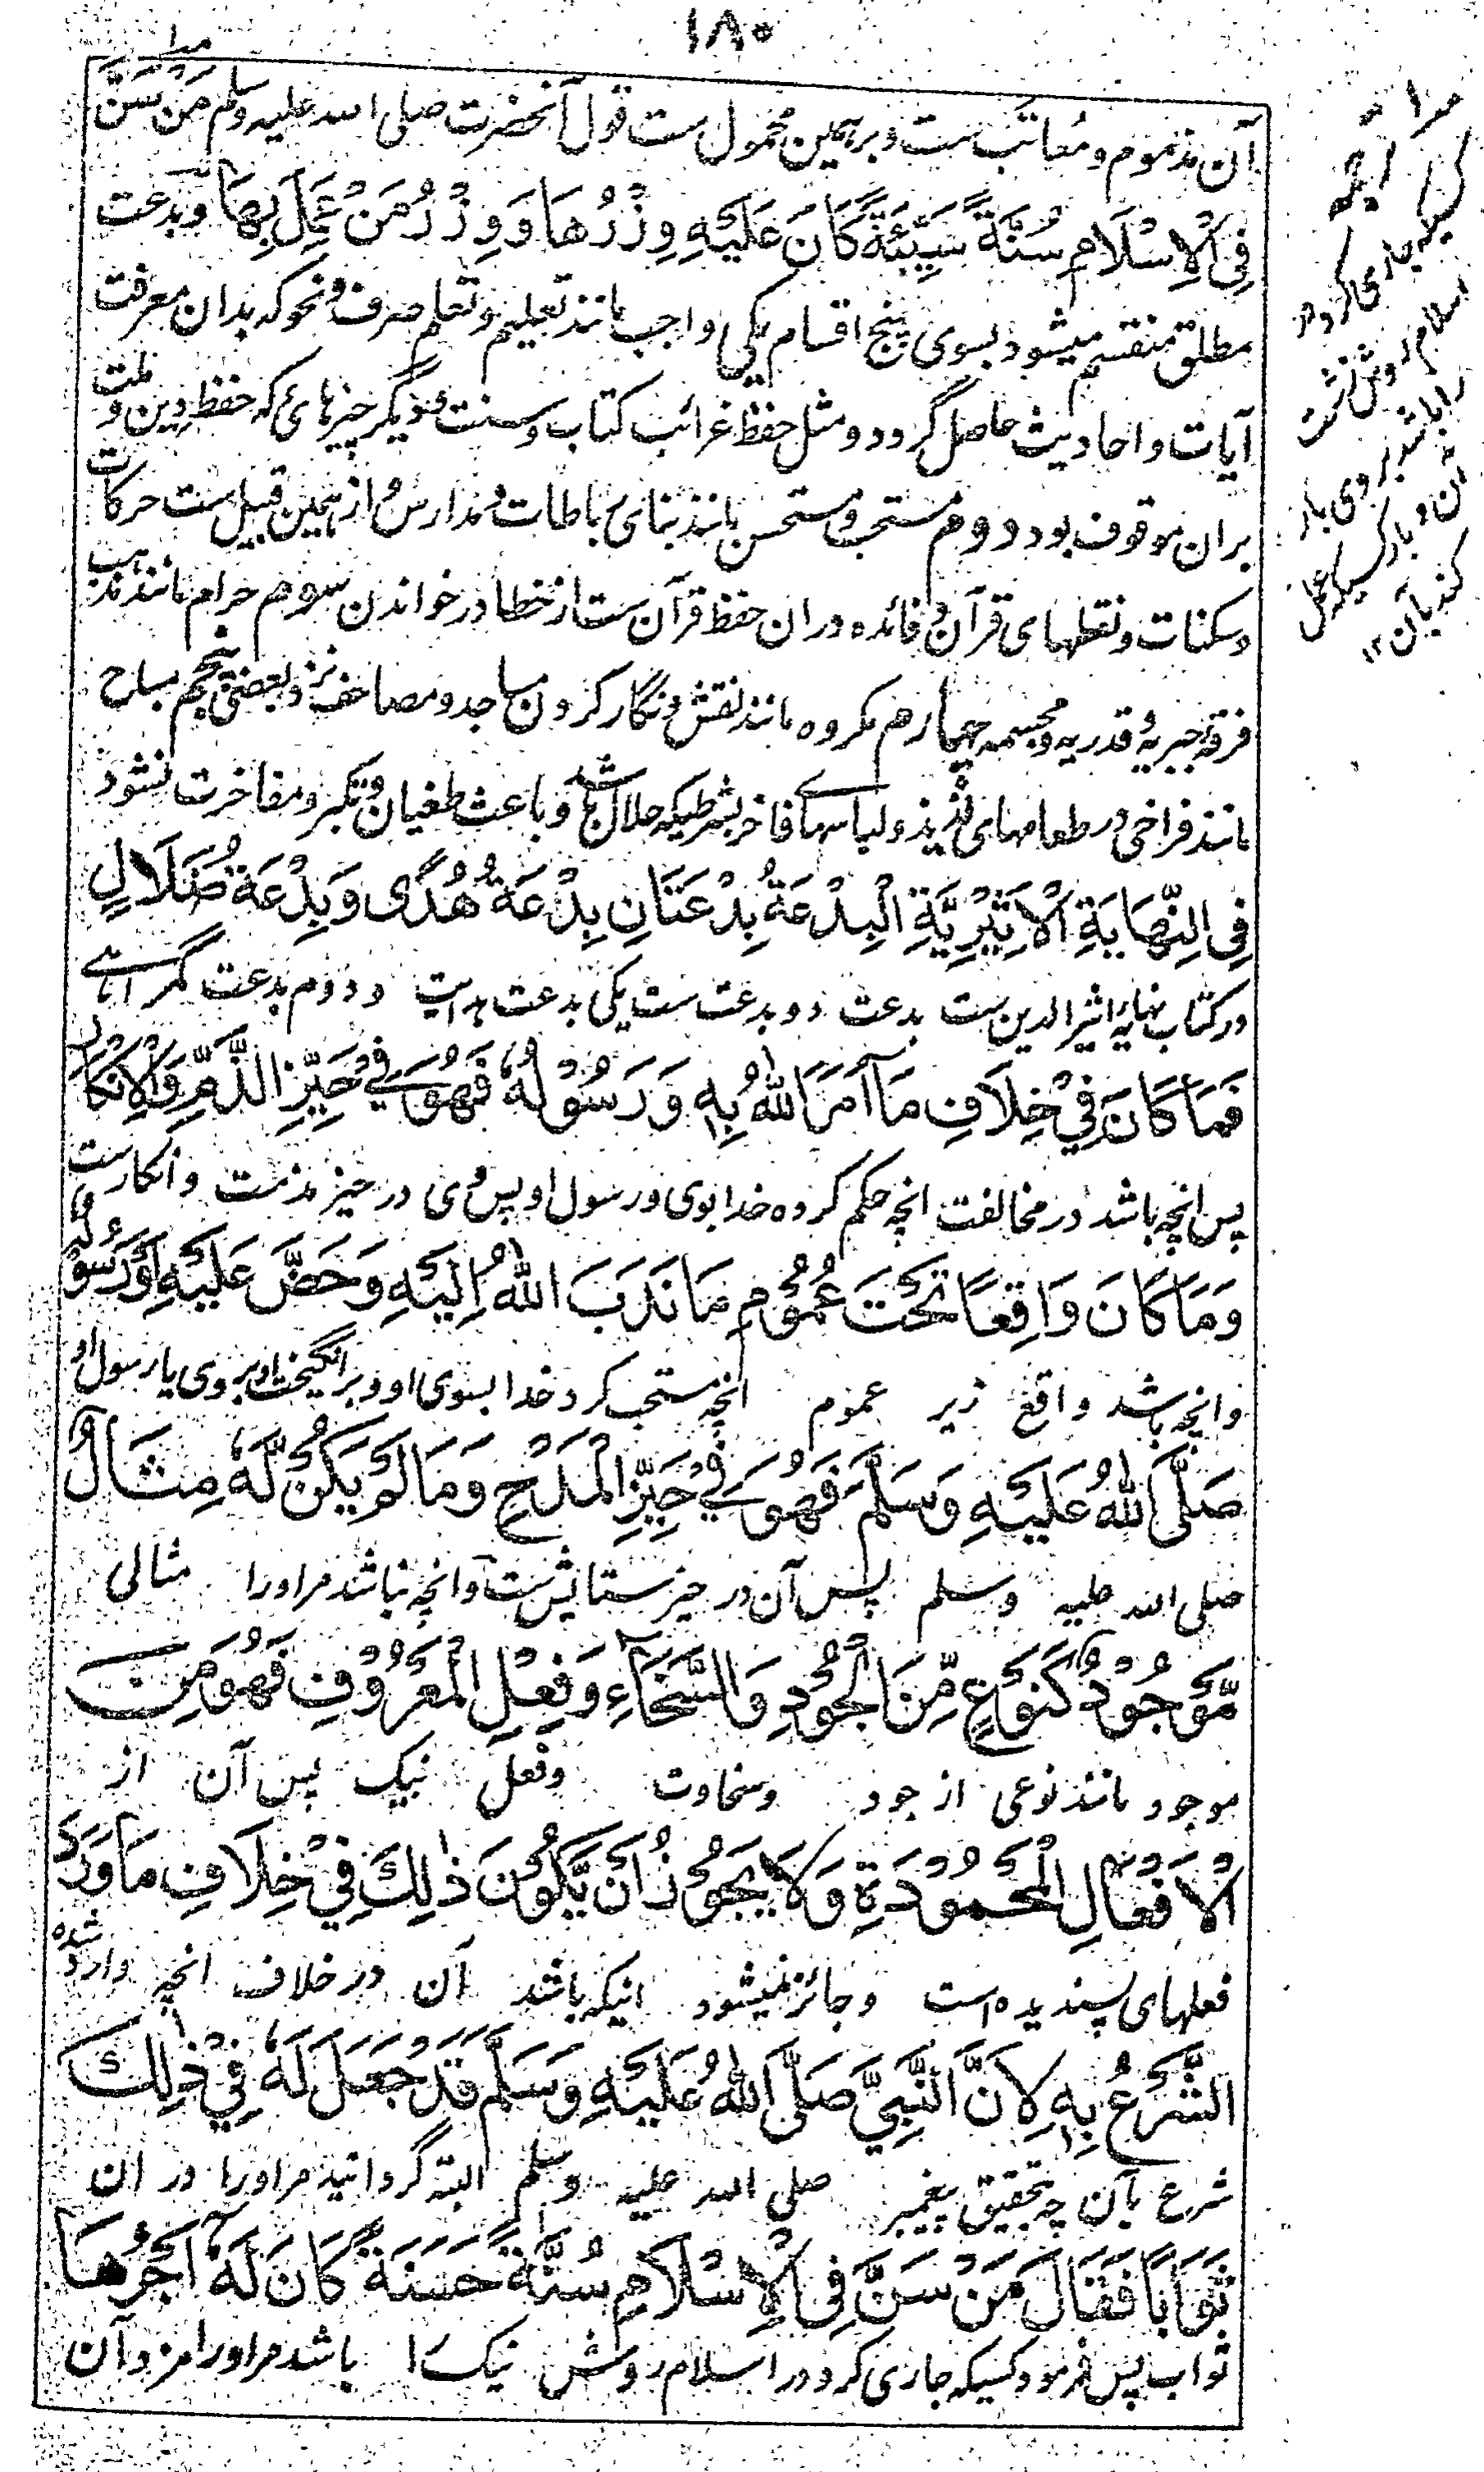 ۱۸۰
آن مذموم و معاتب ست و برہمین محمول ست قول آنحضرت صلی اللہ علیہ وسلم مَنْ سَنَّ
فِی الْاِسْلَامِ سُنَّةً سَيِّئَةً كَانَ عَلَيْهِ وِزْرُهَا وَوِزْرُ مَنْ عَمِلَ بِهَا وبدعت
مطلق منقسم میشود بسوی پنج اقسام یکی واجب مانند تعلیم و تعلم صرف و نحو کہ بدان معرفت
آیات و احادیث حاصل گردد و مثل حفظ غرائب کتاب و سنت و دیگر چیزهای کہ حفظ دین و ملت
بران موقوف بود دوم مستحب و مستحسن مانند بنای رباطات و مدارس و از ہمین قبیل ست حرکات
و سکنات و نقطهای قرآن و فائدہ دران حفظ قرآن ست از خطا در خواندن سوم حرام مانند مذہب
فرقہ جبریہ و قدریہ و مجسمہ چہارم مکروہ مانند نقش و نگار کردن مساجد و مصاحف نزد بعضی پنجم مباح
مانند فراخی در طعامهای لذیذ و لباسهای فاخر بشرطیکہ حلال باشد و باعث طغیان و تکبر و مفاخرت نشود
فِی النِّهَايَةِ الْاَثِيْرِيَّةِ الْبِدْعَةُ بِدْعَتَانِ بِدْعَةُ هُدًى وَبِدْعَةُ ضَلَالٍ
در کتاب نہایہ اثیر الدین ست بدعت دو بدعت ست یکی بدعت ہدایت و دوم بدعت گمراہی
فَمَا كَانَ فِيْ خِلَافِ مَا اَمَرَ اللهُ بِهٖ وَرَسُوْلُهٗ فَهُوَ فِيْ حَيِّزِ الذَّمِّ وَالْاِنْكَارِ
پس انچہ باشد در مخالفت انچہ حکم کردہ خدا بوی و رسول او پس وی در حیز مذمت و انکارست
وَمَا كَانَ وَاقِعًا تَحْتَ عُمُوْمِ مَا نَدَبَ اللهُ اِلَيْهِ وَحَضَّ عَلَيْهِ اَوْ رَسُوْلُهٗ
وانچہ باشد واقع زیر عموم انچہ مستحب کرد خدا بسوی او و برانگیخت او بروی یا رسول او
صَلَّى اللهُ عَلَيْهِ وَسَلَّمَ فَهُوَ فِيْ حَيِّزِ الْمَدْحِ وَمَا لَمْ يَكُنْ لَّهٗ مِثَالٌ
صلی اللہ علیہ وسلم پس آن در حیز ستایش ست وانچہ نباشد مر اورا مثالی
مَّوْجُوْدٌ كَنَوْعٍ مِّنَ الْجُوْدِ وَالسَّخَآءِ وَفِعْلِ الْمَعْرُوْفِ فَهُوَ مِنَ
موجود مانند نوعی از جود وسخاوت وفعل نیک پس آن از
الْاَفْعَالِ الْمَحْمُوْدَةِ وَلَا يَجُوْزُ اَنْ يَّكُوْنَ ذٰلِكَ فِيْ خِلَافِ مَا وَرَدَ
فعلهای پسندیدہ است و جائز نمیشود اینکہ باشد آن در خلاف انچہ وارد شدہ
الشَّرْعُ بِهٖ لِاَنَّ النَّبِيَّ صَلَّى اللهُ عَلَيْهِ وَسَلَّمَ قَدْ جَعَلَ لَهٗ فِيْ ذٰلِكَ
شرع بآن چہ تحقیق پیغمبر صلی اللہ علیہ وسلم البتہ گردانید مر اورا در ان
ثَوَابًا فَقَالَ مَنْ سَنَّ فِی الْاِسْلَامِ سُنَّةً حَسَنَةً كَانَ لَهٗ اَجْرُهَا
ثواب پس فرمود کسیکہ جاری کرد در اسلام روش نیک را باشد مر اورا مزد آن
کسیکہ جاری کرد در
اسلام روش زشت
را باشد بروی بار
آن و بار کسیکہ عمل
کند بآن ۱۲